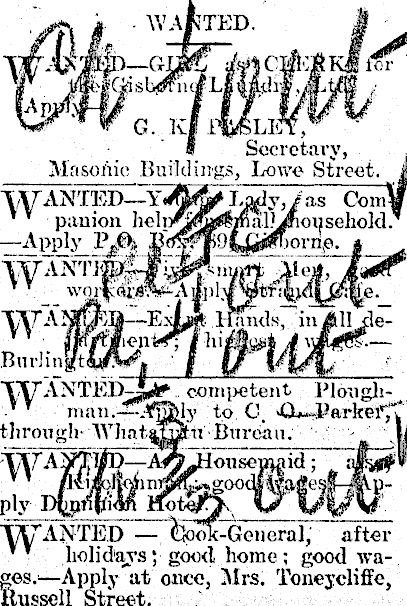 WANTED.
WANTED—GIRL as CLERK for
the Gisborne Laundry, Ltd.
Apply—
G. K. PASLEY,
Secretary,
Masonic Buildings, Lowe Street.
WANTED—Young Lady, as Com-
panion help for small household.
—Apply P.O. Box Gisborne.
WANTED— smart Men, good
workers.—Apply Strand Cafe.
WANTED—Extra Hands, in all de-
partments; highest wages.—
Burlington.
WANTED—A competent Plough-
man.—Apply to C. O. Parker,
through Whatatutu Bureau.
WANTED—A Housemaid; also
Kitchenman, good wages.—Ap-
ply Dominion Hotel.
WANTED — Cook-General, after
holidays; good home; good wa-
ges.—Apply at once, Mrs. Toneycliffe,
Russell Street.
Ch out
out
out
Ch out